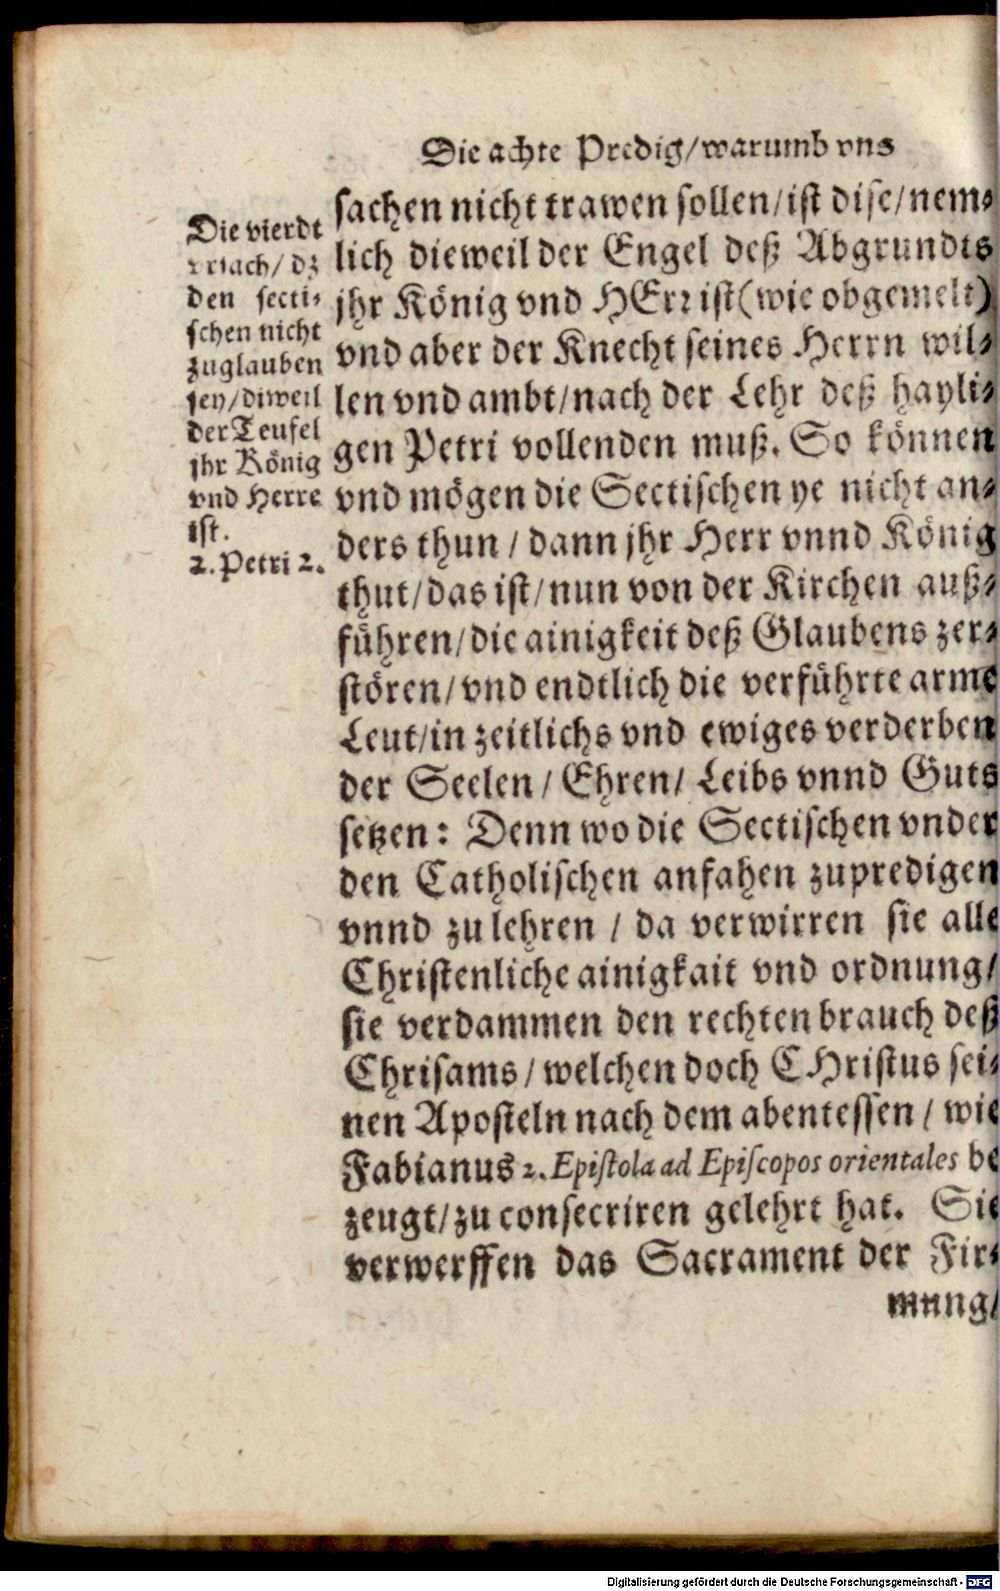 Die achte Predig/warumb vns
Die vierdt
vrsach/ dz
den secti⸗
schen nicht
zuglauben
sey/diweil
der Teufel
jhr König
vnd Herre
ist.
2. Petri 2.
sachen nicht trawen sollen/ist dise/nem⸗
lich dieweil der Engel deß Abgrundts
jhr König vnd HErr ist(wie obgemelt)
vnd aber der Knecht seines Herrn wil⸗
len vnd ambt/nach der Lehr deß hayli⸗
gen Petri vollenden muß. So können
vnd mögen die Sectischen ye nicht an⸗
ders thun / dann jhr Herr vnnd König
thut/das ist/nun von der Kirchen auß⸗
führen/die ainigkeit deß Glaubens zer⸗
stören/vnd endtlich die verführte arme
Leut/in zeitlichs vnd ewiges verderben
der Seelen / Ehren/ Leibs vnnd Guts
setzen: Denn wo die Sectischen vnder
den Catholischen anfahen zupredigen
vnnd zu lehren / da verwirren sie alle
Christenliche ainigkait vnd ordnung/
sie verdammen den rechten brauch deß
Chrisams/welchen doch CHristus sei⸗
nen Aposteln nach dem abentessen / wie
Fabianus 2. Epistola ad Episcopos orientales be
zeugt/zu consecriren gelehrt hat. Sie
verwerffen das Sacrament der Fir⸗
mung/
Digitalisierung gefördert durch die Deutsche Forschungsgemeinschaft - DFG